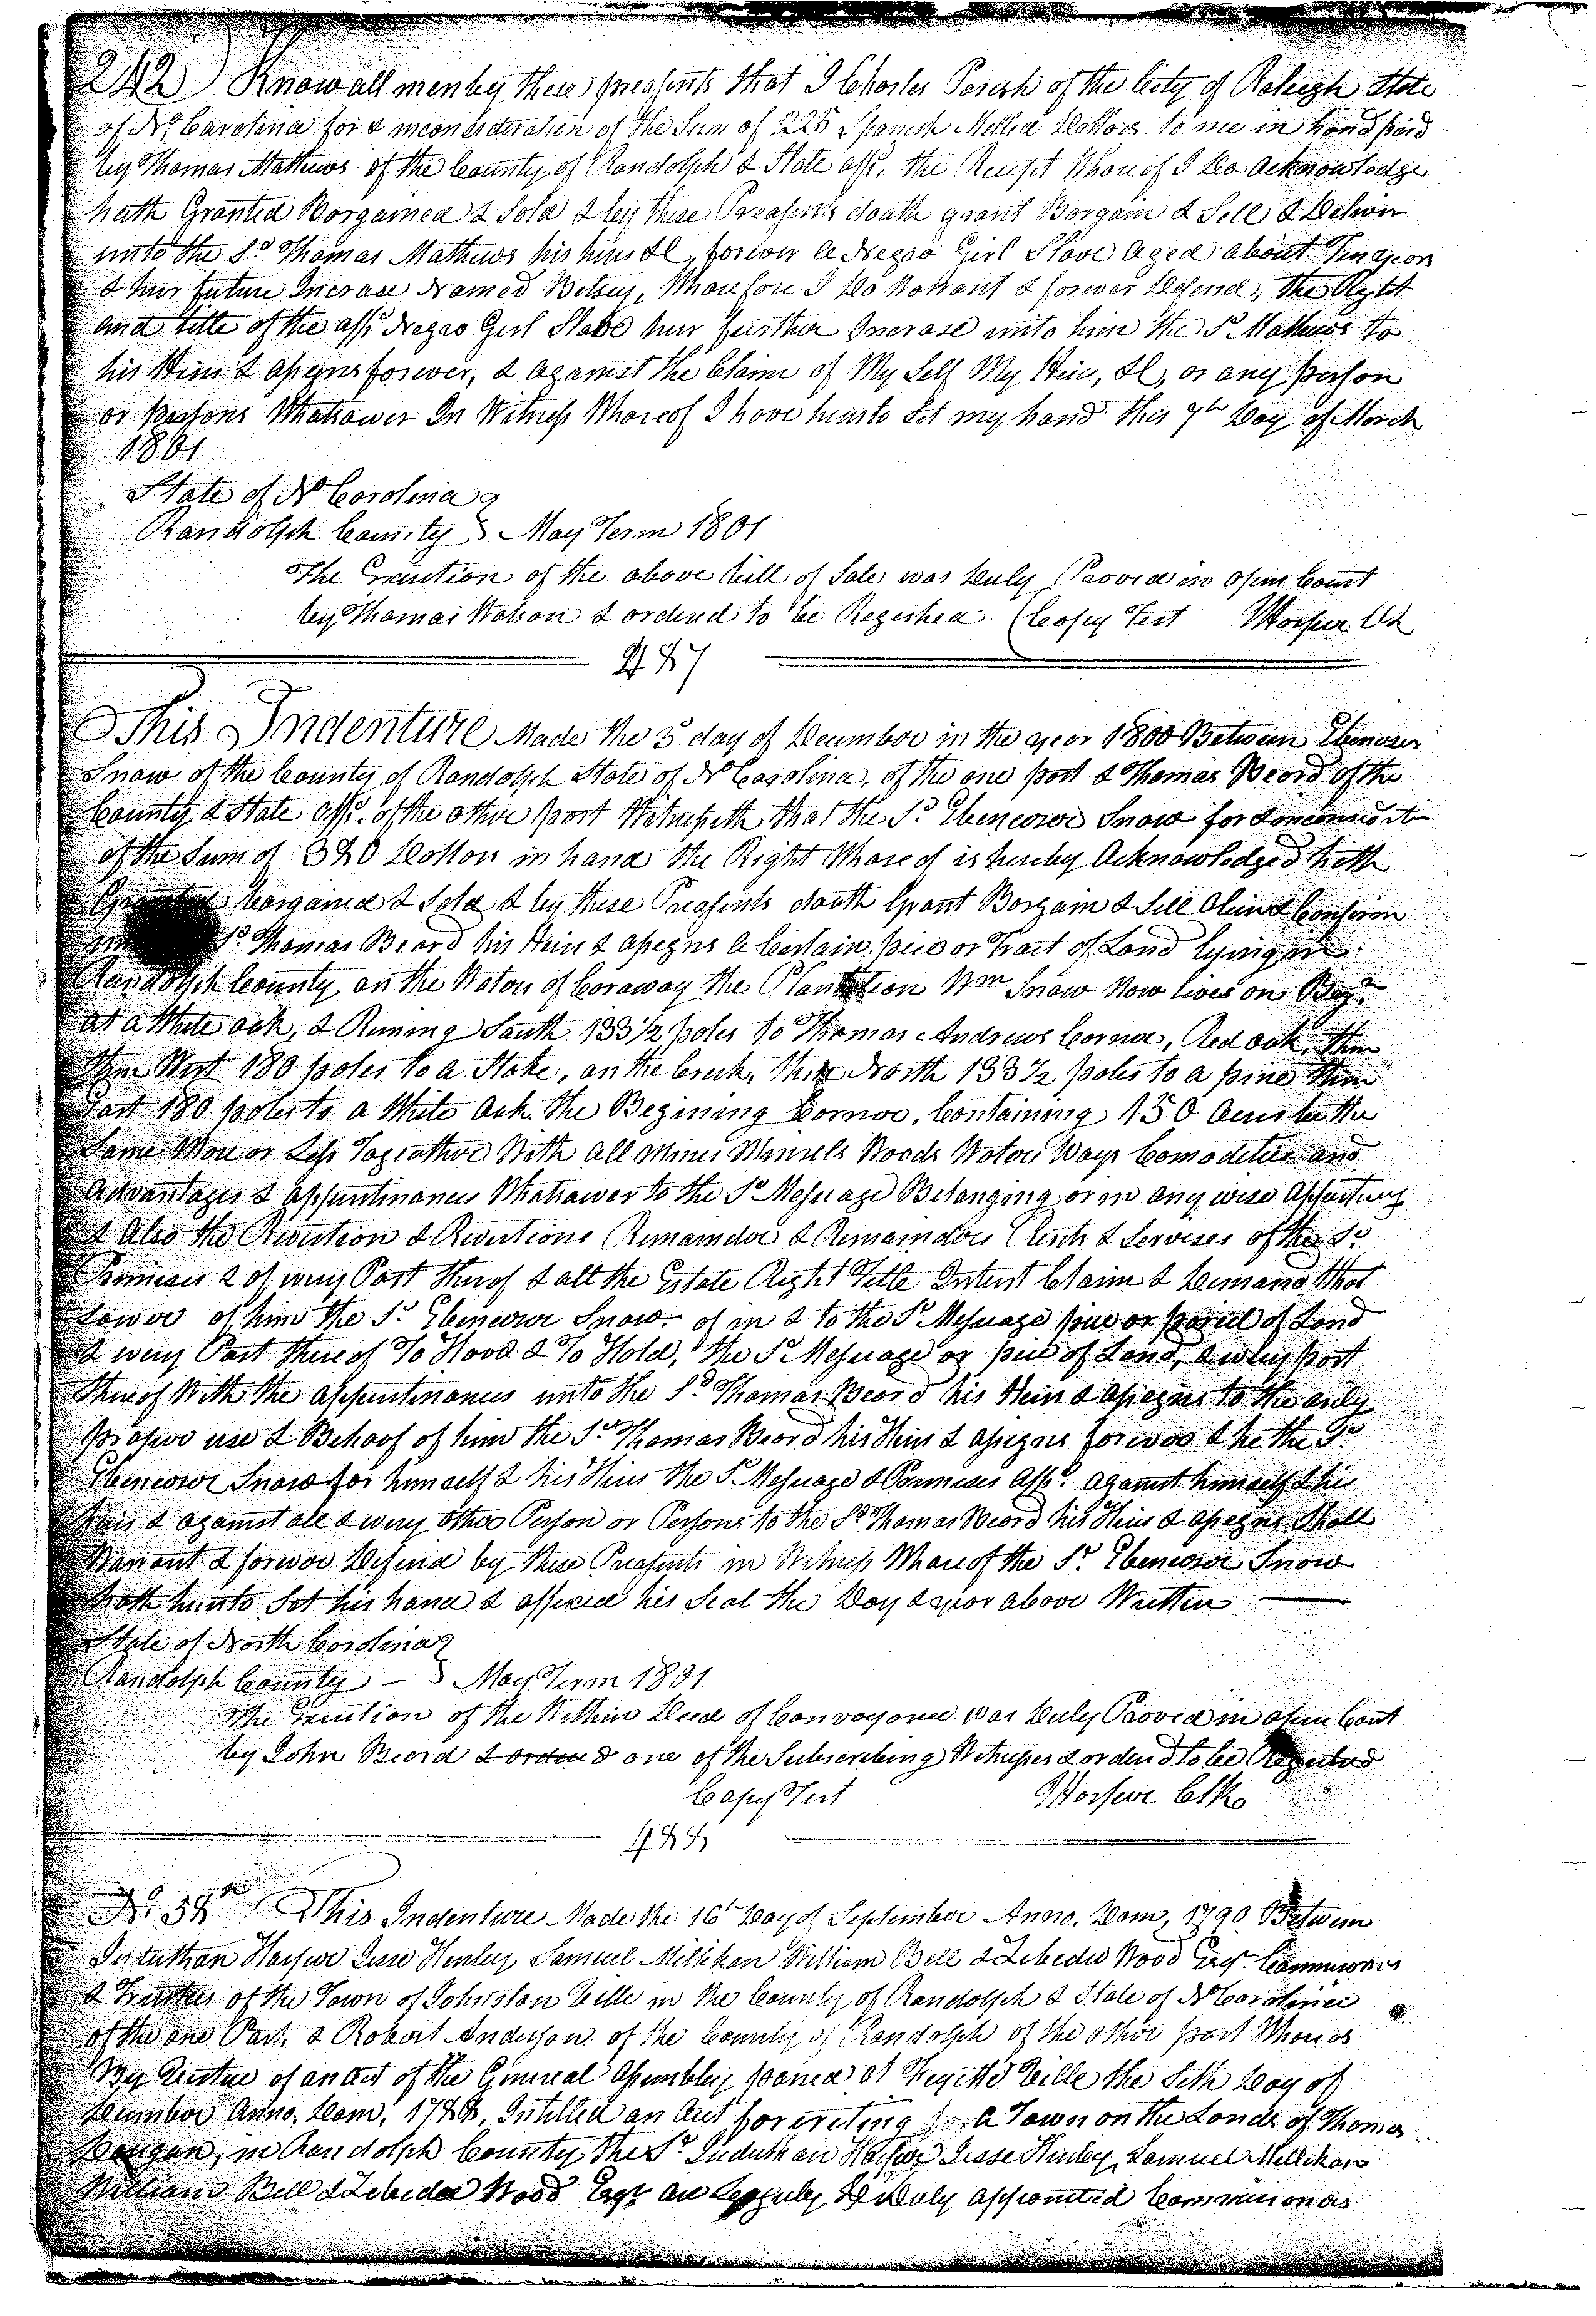 242) Know all men by these preasents that I Charles Parish of the City of Raleigh State
of No. Carolina for & inconsideration of the Sum of 225 Spanish Milled Dollars to me in hand paid
by Thomas Mathews of the County of Randolph & State afsd. the Receipt Whareof I Do acknowledge
hath Granted Borgained & Sold & by these Preasents doath grant Borgain & Sell & Deliver
unto the Sd. Thomas Mathews his heirs &c, forever a Negro Girl Slave Aged about Ten years
& hur future Increase Named Betsey, Wharefore I Do Warrant & forever Defend, the Right
and title of the afsd Negro Girl Slave hur further Increase unto him the Sd Mathews to
his Heirs & Assigns forever, & against the Claim of My Self My Heirs, &c, or any person
or persons Whatsoever In Witness Whareof I have hereunto Set my hand this 7th Day of March
1801
State of No Carolina
Randolph County } May Term 1801
The Execution of the above bill of Sale was Duly Proved in open Court
by Thomas Watson & ordered to be Registred (Copy Test JHarper Clk
487
This Indenture Made the 3d day of December in the year 1800 Between Ebenezer
Snow of the County of Randolph State of No Carolina, of the one part & Thomas Beard of the
County & State afsd. of the other part Witnesseth that the Sd. Ebenezer Snow for &
of the Sum of 380 Dollars in hand the Right Whareof is hereby Acknowledged hath
Granted borgained & Sold & by these Preasents doath Grant Borgain & Sell Alien & Confirm
Sd. Thomas Beard his Heirs & Assigns a Certain piece or Tract of Land Lying in
Randolph County on the Waters of Caraway the Plantation Wm Snow Now lives on Beg.
at a White oak, & Runing South 133 1/2 poles to Thomas Andrews Corner, Red oak, then
then West 180 poles to a Stake, on the Creek, then North 133 1/2 poles to a pine then
East 180 poles to a White Oak the Begining Corner, Containing 150 Acres be the
Same More or Less Togeather With all Mines Minirels Woods Waters Ways Comodities and
Advantages & appurtinances Whatsoever to the Sd Mesuage Belonging or in any wise Appurtaing
& Also the Revertion & Revertions Remainder & Remainders Rents & Servises of the Sd
Premises & of every Part thereof & all the Estate Right Title Interest Claim & Demand What
soever of him the Sd. Ebenezer Snow of in & to the Sd Mesuage piece or parcel of Land
& every Part there of To Have & To Hold, the Sd Mesuage or piece of Land, & every part
thereof With the appurtinances unto the Sd. Thomas Beard his Heirs & Assigns to the only
proper use & Behoof of him the Sd. Thomas Beard his Heirs & Assigns forever & he the Sd
Ebenezer Snow for himself & his Heirs the Sd Mesuage & Premises Afsd. against himself & his
heirs & against all & every other Person or Persons to the Sd Thomas Beard his Heirs & Assigns Shall
Warrant & forever Defend by these Preasents in Witness Whareof the Sd. Ebenezer Snow
hath hereunto Set his hand & affixed his Seal the Day & year above Written
State of North Carolina
Randolph County } May Term 1801
The Execution of the Within Deed of Convayance was Duly Proved in open Court
by John Beard & ordered one of the Subscribing Witnesses & orderd to be Registred
Copy Test JHarper Clk
488
No. 58 This Indenture Made the 16th Day of September Anno. Dom, 1790 Between
Jeduthan Harper Jesse Henley Samuel Millikan William Bell & Zebedee Wood Esqr. Commisoners
& Trustees of the Town of Johnston Ville in the County of Randolph & State of No Carolina
of the one Part, & Robert Anderson of the County of Randolph of the other part Whareas
By Virtue of an act of the General Assembly passed at Fayette Ville the Sixth Day of
December Anno. Dom, 1788, Intitled an Act for erecting a Town on the Lands of Thomas
Dougan, in Randolph County, the Sd Jeduthan Harper Jesse Henley, Samuel Millikan
William Bell & Zebedee Wood Esqr. are Legguly & Duly appointed Commisioners